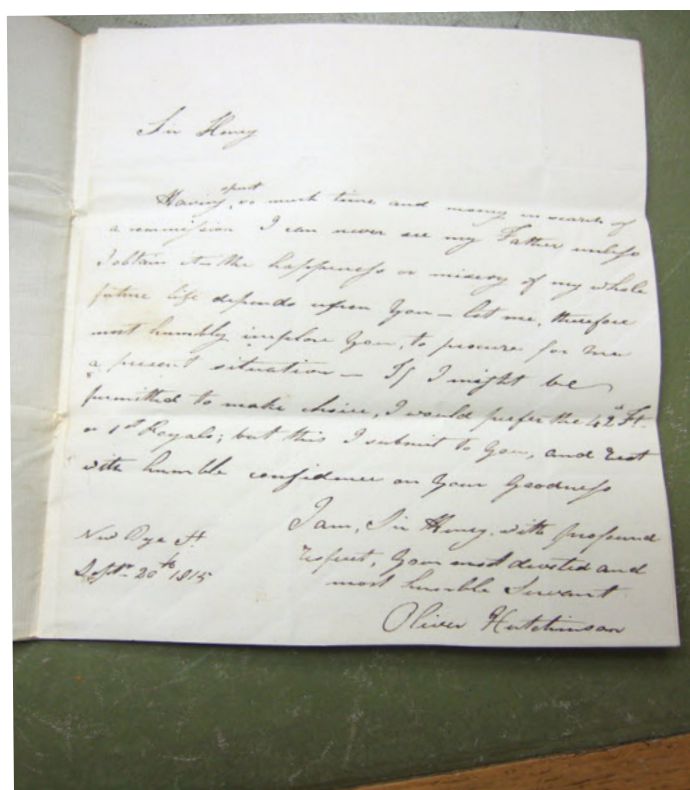 Sir Henry
spent
Having, so much time and money in search of
a commission I can never see my Father unless
I obtain it — the happiness or misery of my whole
future life depends upon You — let me, therefore
most humbly implore You, to procure for me
a present situation — If I might be
permitted to make choice, I would prefer the 42d Ft.
or 1st Royals; but this I submit to You, and rest
with humble confidence on Your Goodness
I am, Sir Henry, with profound
respect, Your most devoted and
most humble Servant
Oliver Hutchinson
New Pye St
Septr. 20th 1815